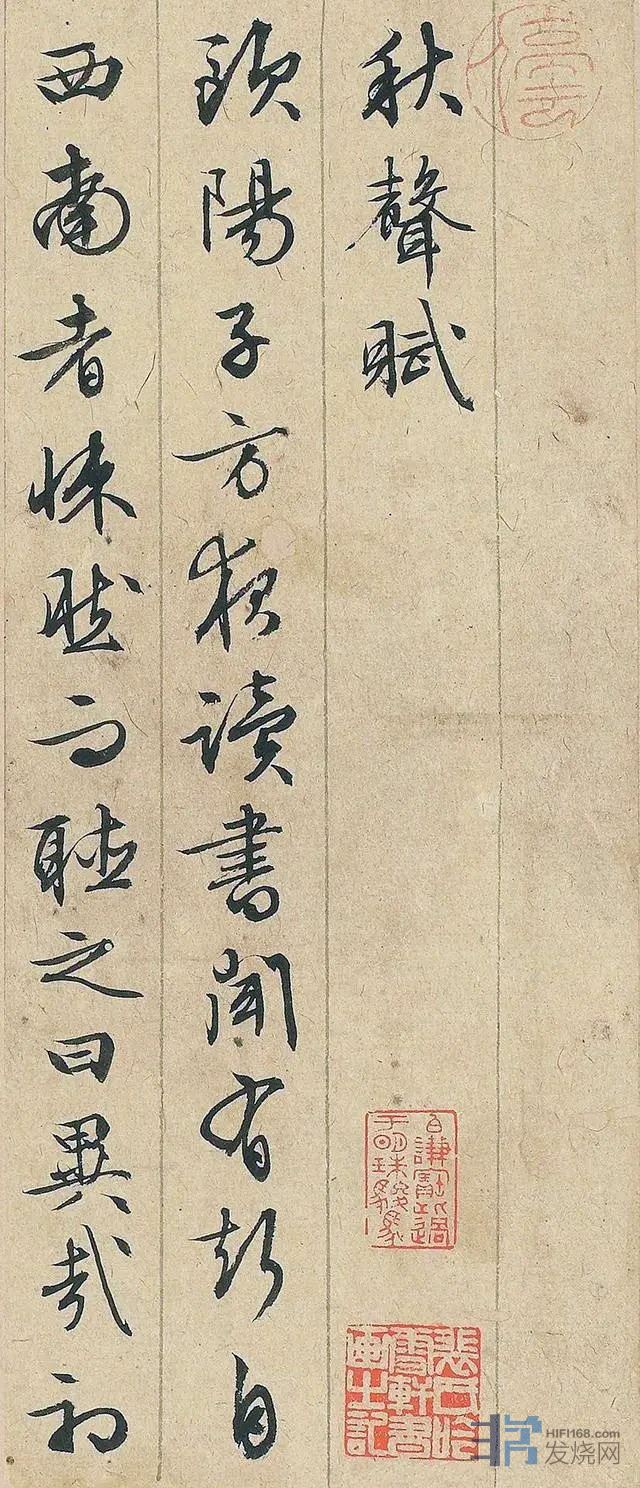 秋聲賦
歐陽子方夜讀書聞有聲自
西南者悚然而聽之曰異哉初
HIFI168.com
发烧网